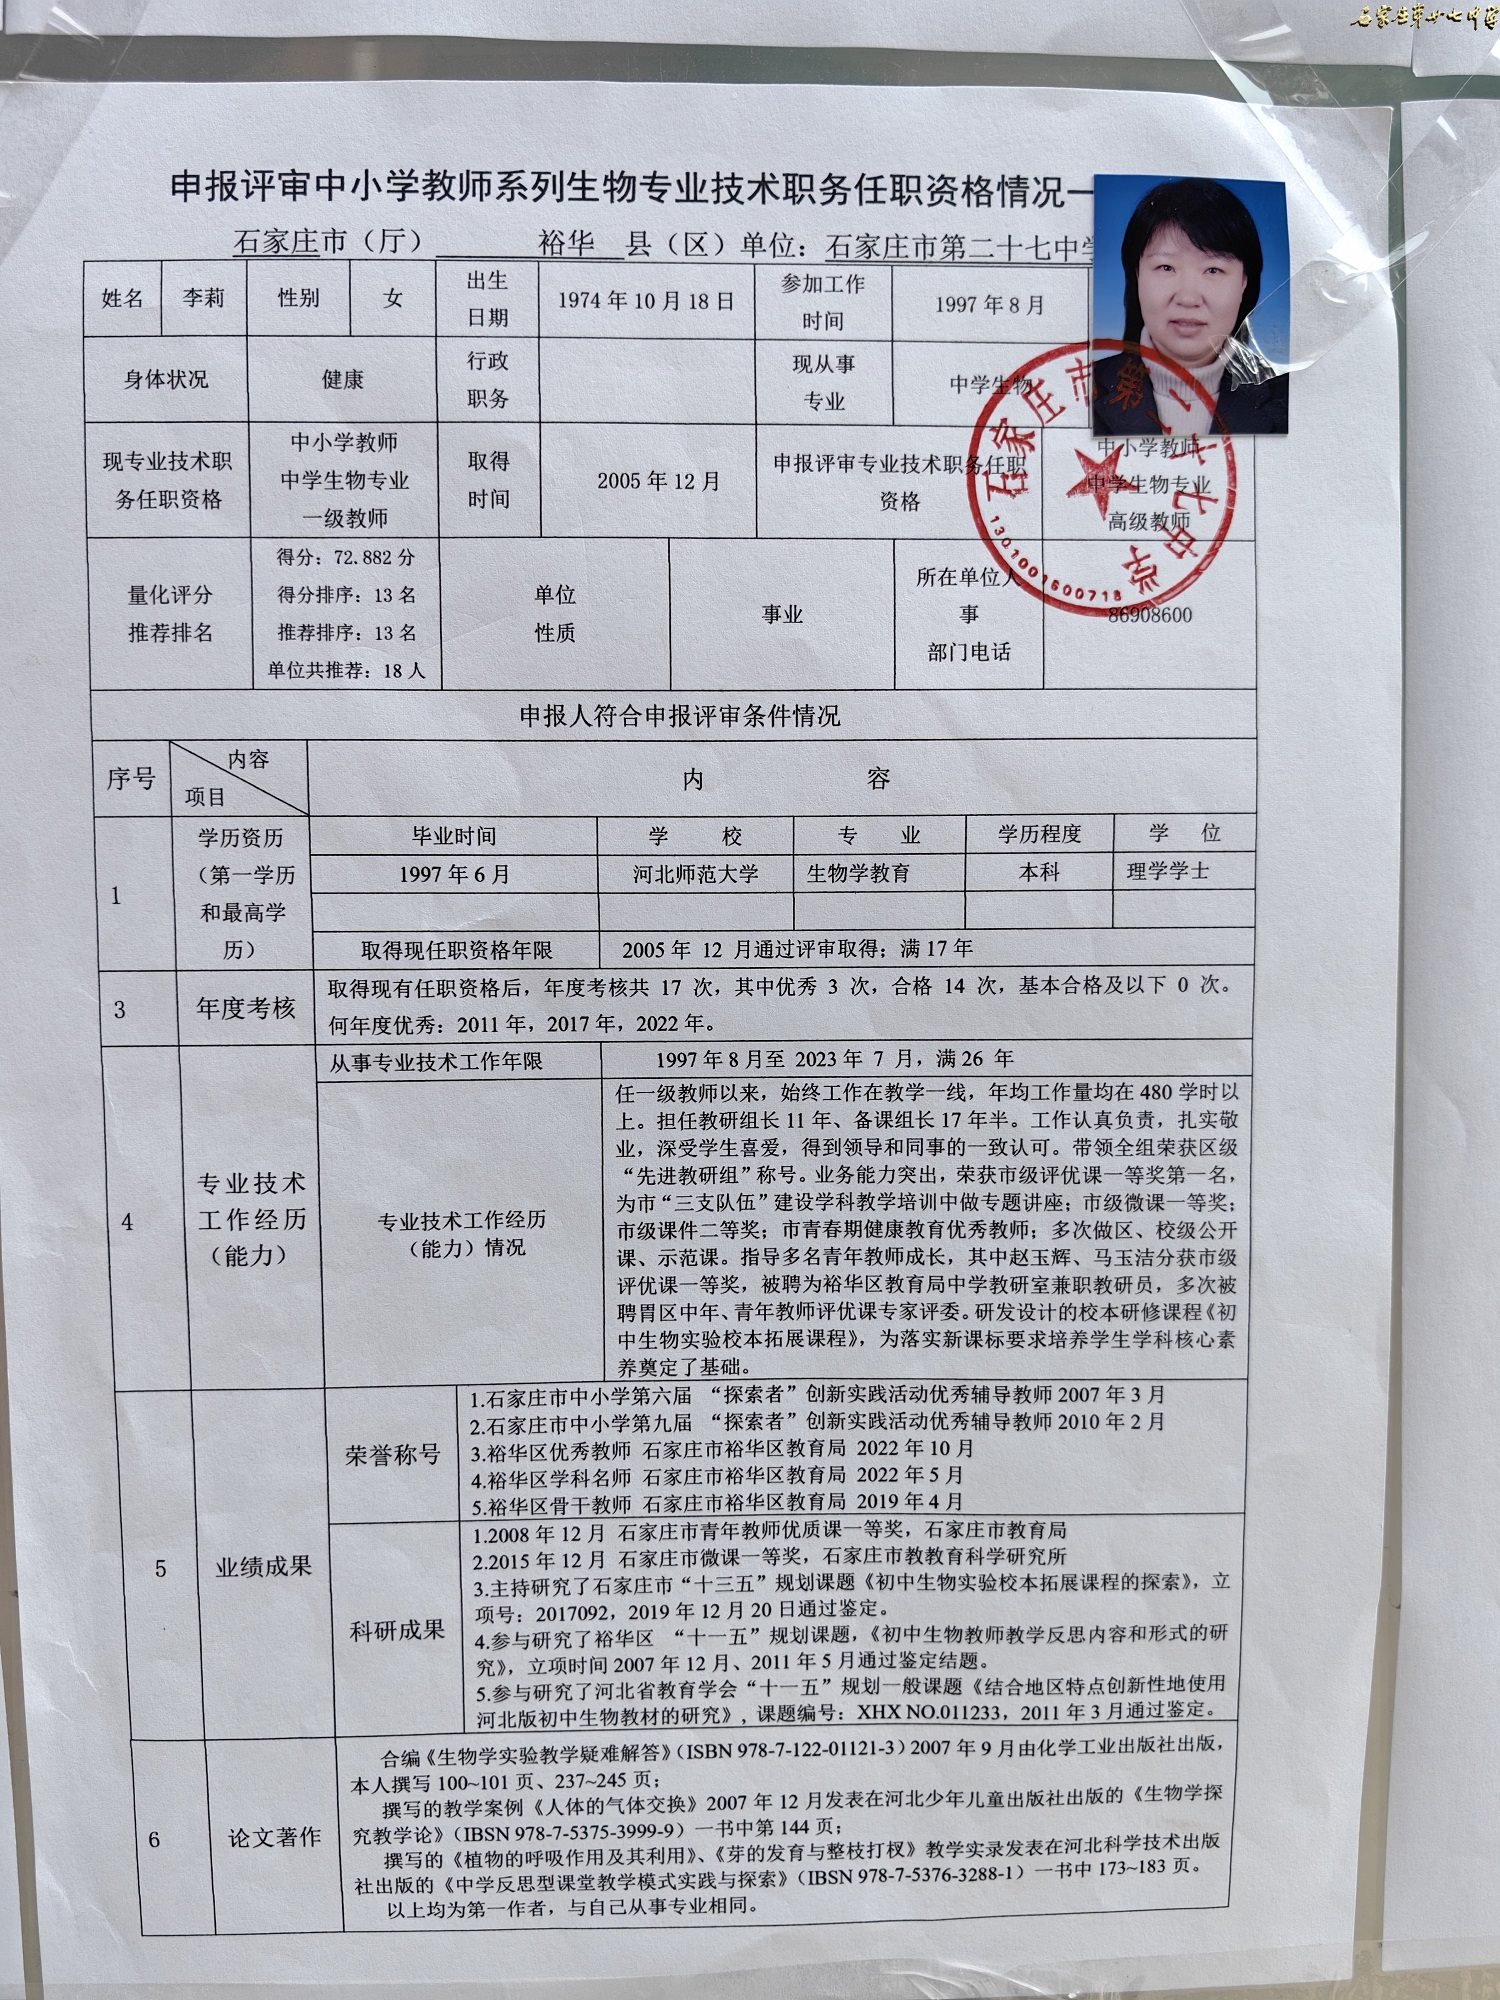 石家庄第廿七中学
申报评审中小学教师系列生物专业技术职务任职资格情况一
石家庄市（厅） 裕华 县（区）单位：石家庄市第二十七中学
姓名 李莉 性别 女 出生日期 1974年10月18日 参加工作时间 1997年8月
身体状况 健康 行政职务 现从事专业 中学生物
现专业技术职务任职资格 中小学教师中学生物专业一级教师 取得时间 2005年12月 申报评审专业技术职务任职资格 中小学教师中学生物专业高级教师
石家庄市第二十七中学
1301001600718
量化评分推荐排名
得分：72.882分
得分排序：13名
推荐排序：13名
单位共推荐：18人
单位性质 事业 所在单位人事部门电话 86908600
申报人符合申报评审条件情况
序号 内容 项目 内 容
1 学历资历（第一学历和最高学历）
毕业时间 学 校 专 业 学历程度 学 位
1997年6月 河北师范大学 生物学教育 本科 理学学士
取得现任职资格年限 2005年 12 月通过评审取得；满17年
3 年度考核
取得现有任职资格后，年度考核共 17 次，其中优秀 3 次，合格 14 次，基本合格及以下 0 次。
何年度优秀：2011年，2017年，2022年。
4 专业技术工作经历（能力）
从事专业技术工作年限 1997年8月至 2023年 7 月，满26 年
专业技术工作经历（能力）情况
任一级教师以来，始终工作在教学一线，年均工作量均在480学时以
上。担任教研组长11年、备课组长17年半。工作认真负责，扎实敬
业，深受学生喜爱，得到领导和同事的一致认可。带领全组荣获区级
“先进教研组”称号。业务能力突出，荣获市级评优课一等奖第一名，
为市“三支队伍”建设学科教学培训中做专题讲座；市级微课一等奖；
市级课件二等奖；市青春期健康教育优秀教师；多次做区、校级公开
课、示范课。指导多名青年教师成长，其中赵玉辉、马玉洁分获市级
评优课一等奖，被聘为裕华区教育局中学教研室兼职教研员，多次被
聘胃区中年、青年教师评优课专家评委。研发设计的校本研修课程《初
中生物实验校本拓展课程》，为落实新课标要求培养学生学科核心素
养奠定了基础。
5 业绩成果
荣誉称号
1.石家庄市中小学第六届 “探索者”创新实践活动优秀辅导教师2007年3月
2.石家庄市中小学第九届 “探索者”创新实践活动优秀辅导教师2010年2月
3.裕华区优秀教师 石家庄市裕华区教育局 2022年10月
4.裕华区学科名师 石家庄市裕华区教育局 2022年5月
5.裕华区骨干教师 石家庄市裕华区教育局 2019年4月
科研成果
1.2008年12月 石家庄市青年教师优质课一等奖，石家庄市教育局
2.2015年12月 石家庄市微课一等奖，石家庄市教教育科学研究所
3.主持研究了石家庄市“十三五”规划课题《初中生物实验校本拓展课程的探索》，立
项号：2017092，2019年12月20日通过鉴定。
4.参与研究了裕华区 “十一五”规划课题，《初中生物教师教学反思内容和形式的研
究》，立项时间2007年12月、2011年5月通过鉴定结题。
5.参与研究了河北省教育学会“十一五”规划一般课题《结合地区特点创新性地使用
河北版初中生物教材的研究》, 课题编号：XHX NO.011233，2011年3月通过鉴定。
6 论文著作
合编《生物学实验教学疑难解答》（ISBN 978-7-122-01121-3）2007年9月由化学工业出版社出版，
本人撰写100~101页、237~245页；
撰写的教学案例《人体的气体交换》2007年12月发表在河北少年儿童出版社出版的《生物学探
究教学论》（IBSN 978-7-5375-3999-9）一书中第144页；
撰写的《植物的呼吸作用及其利用》、《芽的发育与整枝打杈》教学实录发表在河北科学技术出版
社出版的《中学反思型课堂教学模式实践与探索》（IBSN 978-7-5376-3288-1）一书中173~183页。
以上均为第一作者，与自己从事专业相同。